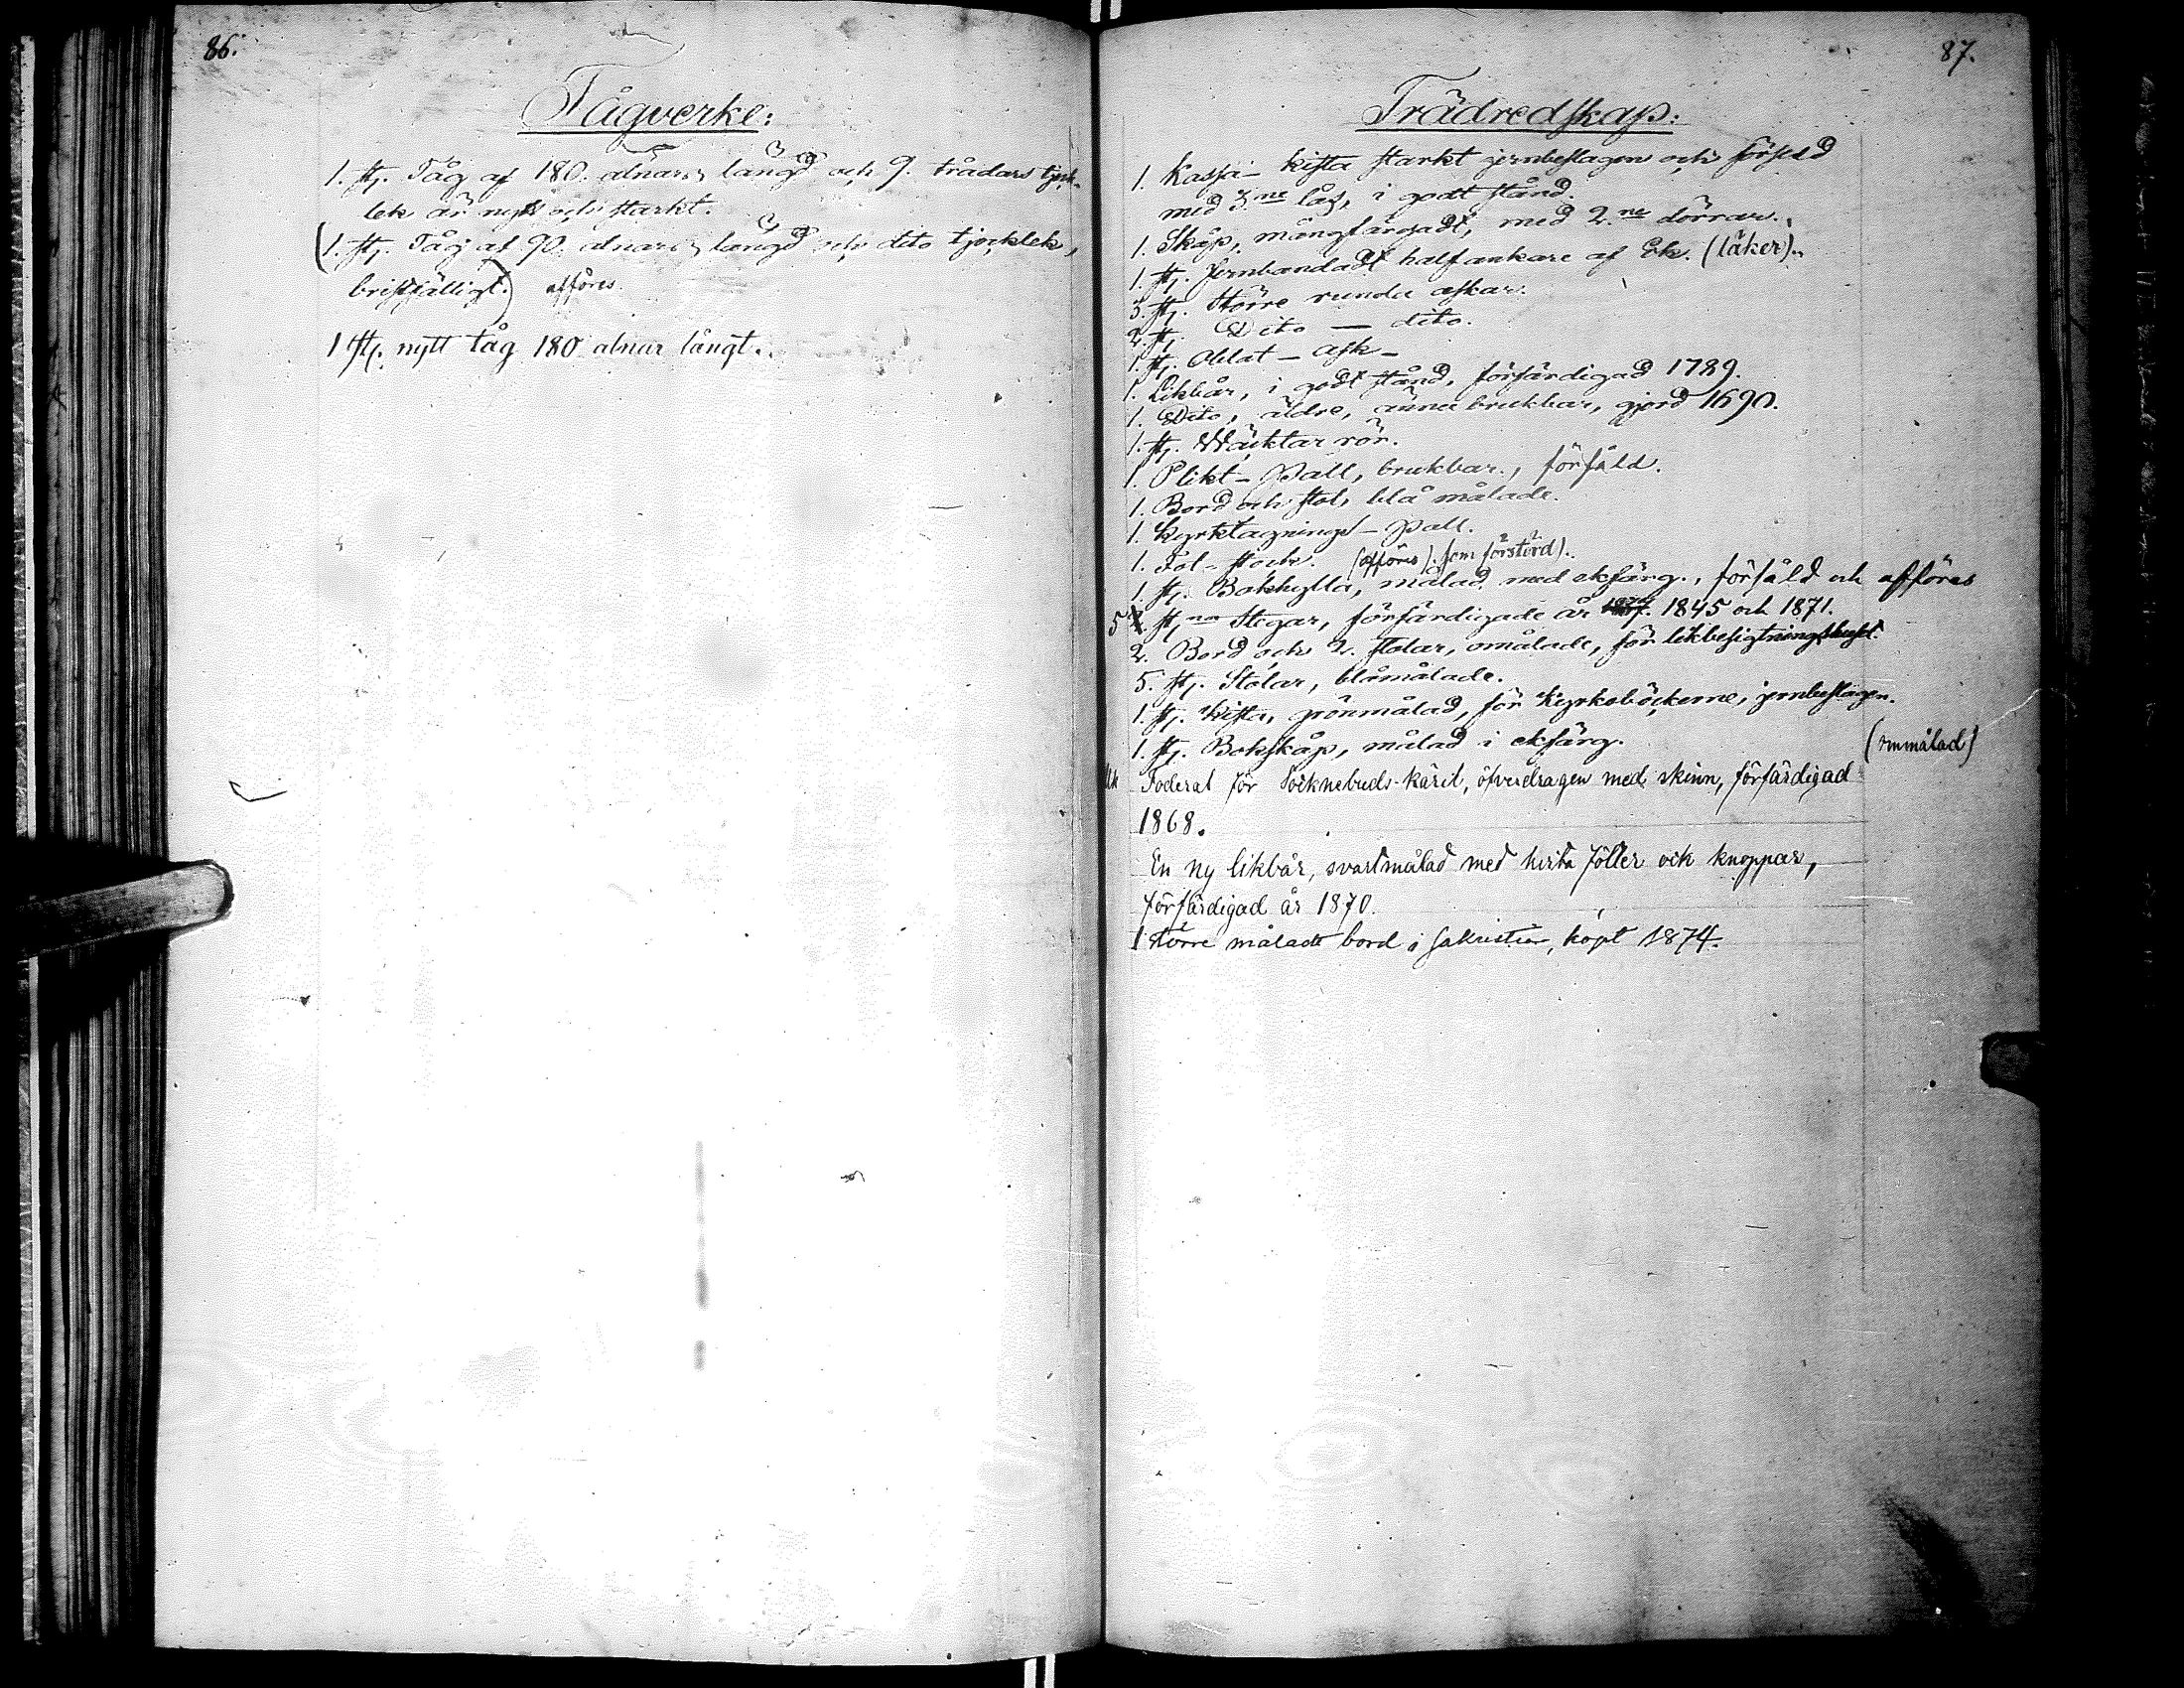 86.
Tågverke:
1. st. Tåg af 180. alnars längd och 9. trådars tjock-
lek är nytt och starkt.
(1. st. Tåg af 90. alnars längd och dito tjocklek,
bristfälligt.) afföres.
1 st. nytt tåg 180 alnar långt.
87.
Trädredskap:
1. Kassa-kista starkt jernbeslagen och försedd
med 3.ne lås, i godt stånd.
1. Skåp, mångfärgadt, med 2.ne dörrar.
1. st. Jernbandadt halfankare af Ek. (läker).
3. st. Större runda askar.
2. st. Dito — dito.
1. st. Oblat-ask-
1. Likbår, i godt stånd, förfärdigad 1789.
1. Dito, äldre, ännu brukbar, gjord 1690.
1. st. Wäcktar rör.
1. Plikt-Pall, brukbar., försåld.
1. Bord och stol, blå målade.
1. Kyrktagnings-Pall.
1. Fol-stock. (afföres). som förstörd).
1. st. Bokhylla, målad med ekfärg., försåld och afföres
5 st. Stegar, förfärdigade år 1845 och 1871.
2. Bord och 2. stolar, omålade, för likbesigtningshuset.
5. st. Stolar, blåmålade.
1. st. Kista, grönmålad, för Kyrkoböckerne, jernbeslagen.
1. st. Bokskåp, målad i ekfärg. (ommålad)
Foderal för Socknebuds-käril, öfverdragen med skinn, förfärdigad
1868.
En ny likbår, svartmålad med hvita fötter och knoppar,
förfärdigad år 1870.
1 större målade bord i sakristian, köpt 1874.